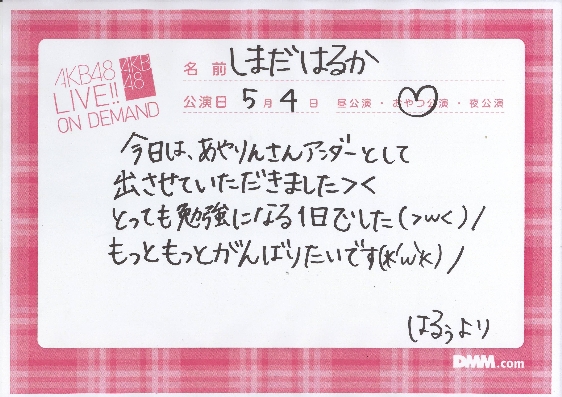 AKB48
LIVE!!
ON DEMAND
AKB
48
名前 しまだはるか
公演日 5月4日 昼公演・おやつ公演・夜公演
今日は、あやりんさんアンダーとして
出させていただきました><
とっても勉強になる1日でした(>w<)/
もっともっとがんばりたいです(*'w'*)/
はるぅより
DMM.com